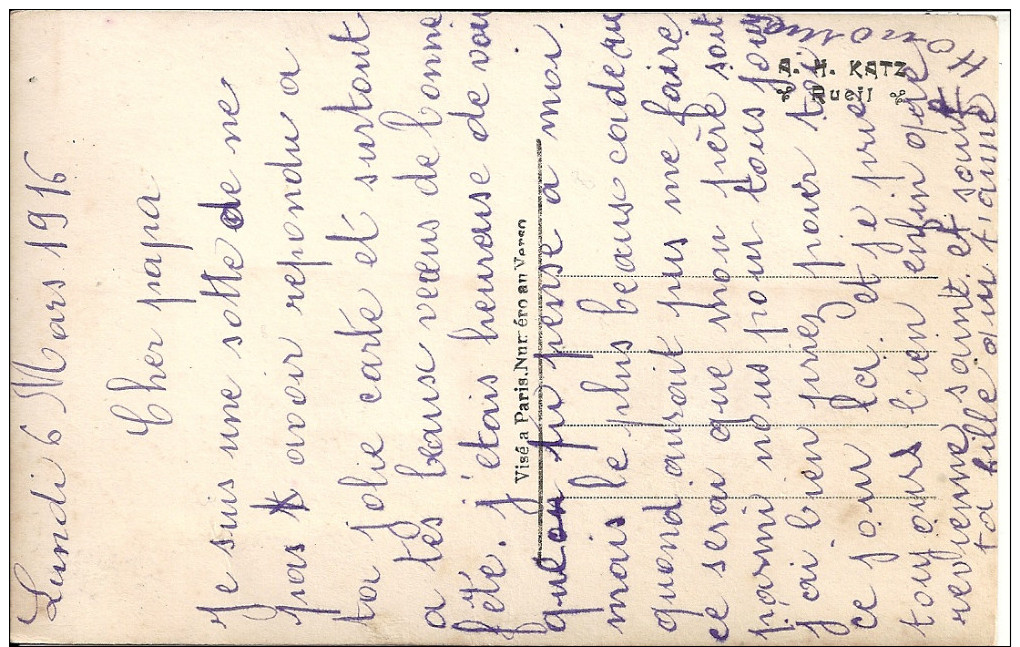 Lundi 6 Mars 1916
Cher papa
Je suis une sotte de ne
pas avoir repondu a
ta jolie carte et surtout
a tes beaux vœux de bonne
fête. j'étais heureuse de voir
que tu pense a moi.
mais le plus beau cadeau
quand aurait pus me faire
ce serai que mon père soit
parmi nous pour tous jour
J'ai bien prier pour toi
ce jour la. et je prie
toujours bien enfin que
revienne sant. et souf
ta fille qui t'aime
Visé a Paris. Numéro au Verso
A. H. KATZ
Rueil